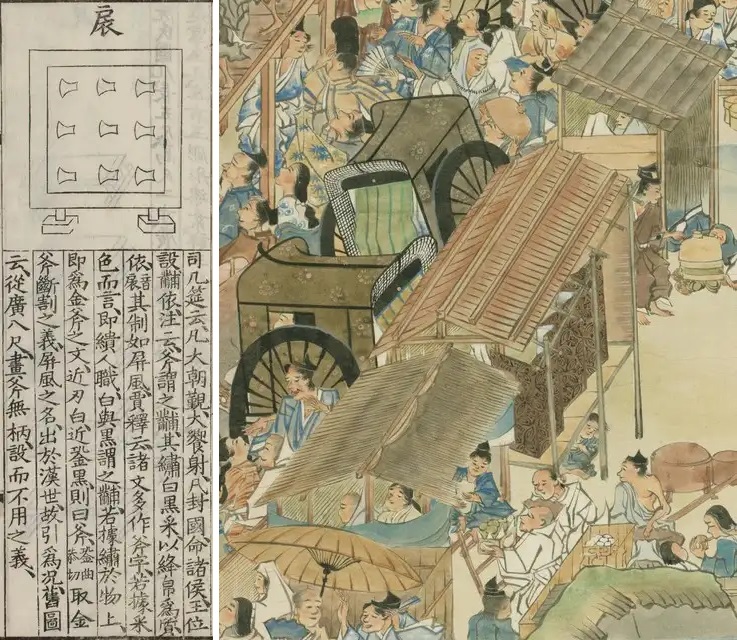 扆
司几筵云凡大朝覲大饗射凡封國命諸侯王位
設黼依注云斧謂之黼其繡白黑采以絳帛爲質
依音扆其制如屏風賈釋云諸文多作斧字若據采
色而言即繢人職白與黑謂之黼若據繡於物上
即爲金斧之文近刃白近銎黑則曰斧銎曲恭切取金
斧斷割之義屏風之名出於漢世故引爲况舊圖
云從廣八尺畫斧無柄設而不用之義